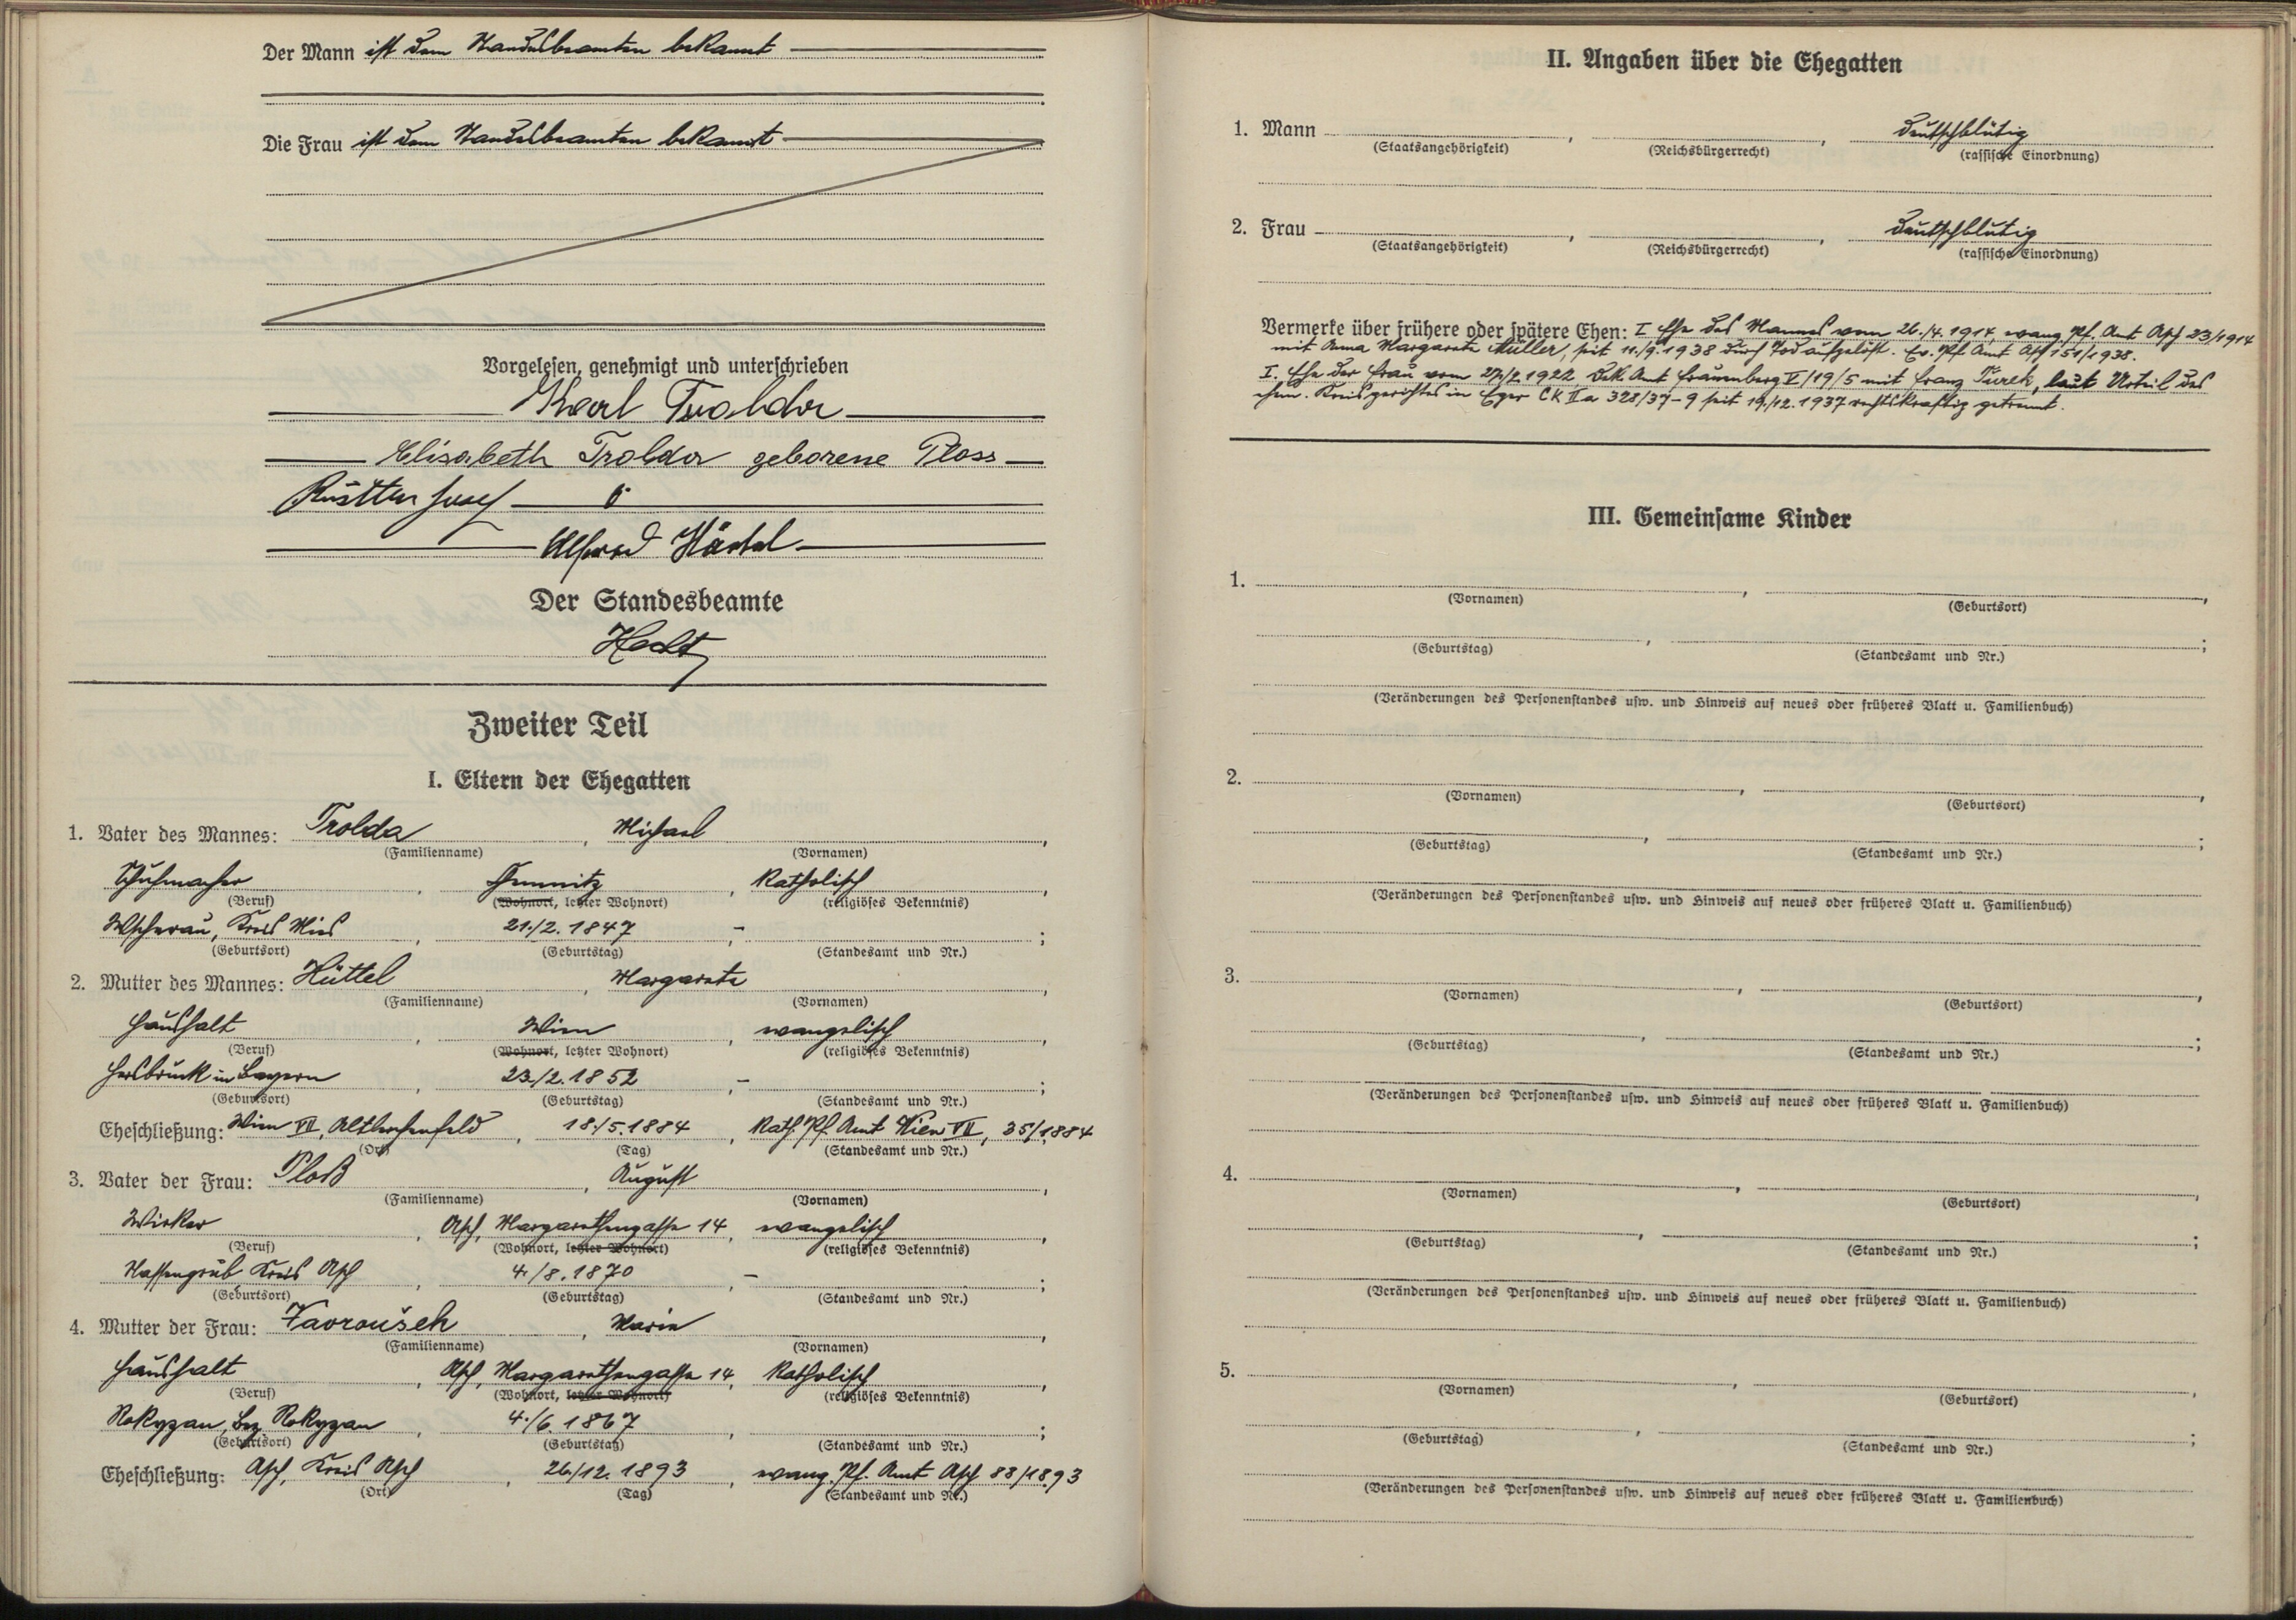 Der Mann ist dem Standesbeamten bekannt
Die Frau ist dem Standesbeamten bekannt
Vorgelesen, genehmigt und unterschrieben
Karl Trolda
Elisabeth Trolda geborene Ploss
Josef
Alfred Härtel
Der Standesbeamte
Hecht
Zweiter Teil
I. Eltern der Ehegatten
1. Vater des Mannes: Trolda, Michael,
(Familienname) (Vornamen)
Schuhmacher, Chemnitz, katholisch,
(Beruf) (Wohnort, letzter Wohnort) (religiöses Bekenntnis)
Wscherau, Kreis Mies, 21./2.1847, -;
(Geburtsort) (Geburtstag) (Standesamt und Nr.)
2. Mutter des Mannes: Hüttel, Margarete,
(Familienname) (Vornamen)
Haushalt, Wien, evangelisch,
(Beruf) (Wohnort, letzter Wohnort) (religiöses Bekenntnis)
Hersbruck in Bayern, 23./2.1852, -;
(Geburtsort) (Geburtstag) (Standesamt und Nr.)
Eheschließung: Wien VII, Altlerchenfeld, 18./5.1884, Kath. Pf. Amt Wien VII, 35/1884
(Ort) (Tag) (Standesamt und Nr.)
3. Vater der Frau: Ploß, August,
(Familienname) (Vornamen)
Wirker, Asch, Margarethengasse 14, evangelisch,
(Beruf) (Wohnort, letzter Wohnort) (religiöses Bekenntnis)
Nassengrub, Kreis Asch, 4./8.1870, -;
(Geburtsort) (Geburtstag) (Standesamt und Nr.)
4. Mutter der Frau: Marie,
(Familienname) (Vornamen)
Haushalt, Asch, Margarethengasse 14, katholisch,
(Beruf) (Wohnort, letzter Wohnort) (religiöses Bekenntnis)
Rokyzan, Bez. Rokyzan, 4./6.1867, ;
(Geburtsort) (Geburtstag) (Standesamt und Nr.)
Eheschließung: Asch, Kreis Asch, 26./12.1893, evang. Pf. Amt Asch 88/1893
(Ort) (Tag) (Standesamt und Nr.)
II. Angaben über die Ehegatten
1. Mann , , deutschblütig
(Staatsangehörigkeit) (Reichsbürgerrecht) (rassische Einordnung)
2. Frau , , deutschblütig
(Staatsangehörigkeit) (Reichsbürgerrecht) (rassische Einordnung)
Vermerke über frühere oder spätere Ehen: I Ehe des Mannes vom 26./4.1914, evang. Pf. Amt Asch 23/1914
mit Anna Margarete Müller, seit 11./9.1938 durch Tod aufgelöst. Ev. Pf. Amt Asch 151/1938.
I. Ehe der Frau vom 1922, Dek. Amt Frauenberg V/19/5 mit Franz Turek, laut Urteil des
ehem. Kreisgerichtes in Eger CK IIa 328/37-9 seit 19./12.1937 rechtskräftig getrennt.
III. Gemeinsame Kinder
1. , ,
(Vornamen) (Geburtsort)
, ;
(Geburtstag) (Standesamt und Nr.)
(Veränderungen des Personenstandes usw. und Hinweis auf neues oder früheres Blatt u. Familienbuch)
2. , ,
(Vornamen) (Geburtsort)
, ;
(Geburtstag) (Standesamt und Nr.)
(Veränderungen des Personenstandes usw. und Hinweis auf neues oder früheres Blatt u. Familienbuch)
3. , ,
(Vornamen) (Geburtsort)
, ;
(Geburtstag) (Standesamt und Nr.)
(Veränderungen des Personenstandes usw. und Hinweis auf neues oder früheres Blatt u. Familienbuch)
4. , ,
(Vornamen) (Geburtsort)
, ;
(Geburtstag) (Standesamt und Nr.)
(Veränderungen des Personenstandes usw. und Hinweis auf neues oder früheres Blatt u. Familienbuch)
5. , ,
(Vornamen) (Geburtsort)
, ;
(Geburtstag) (Standesamt und Nr.)
(Veränderungen des Personenstandes usw. und Hinweis auf neues oder früheres Blatt u. Familienbuch)